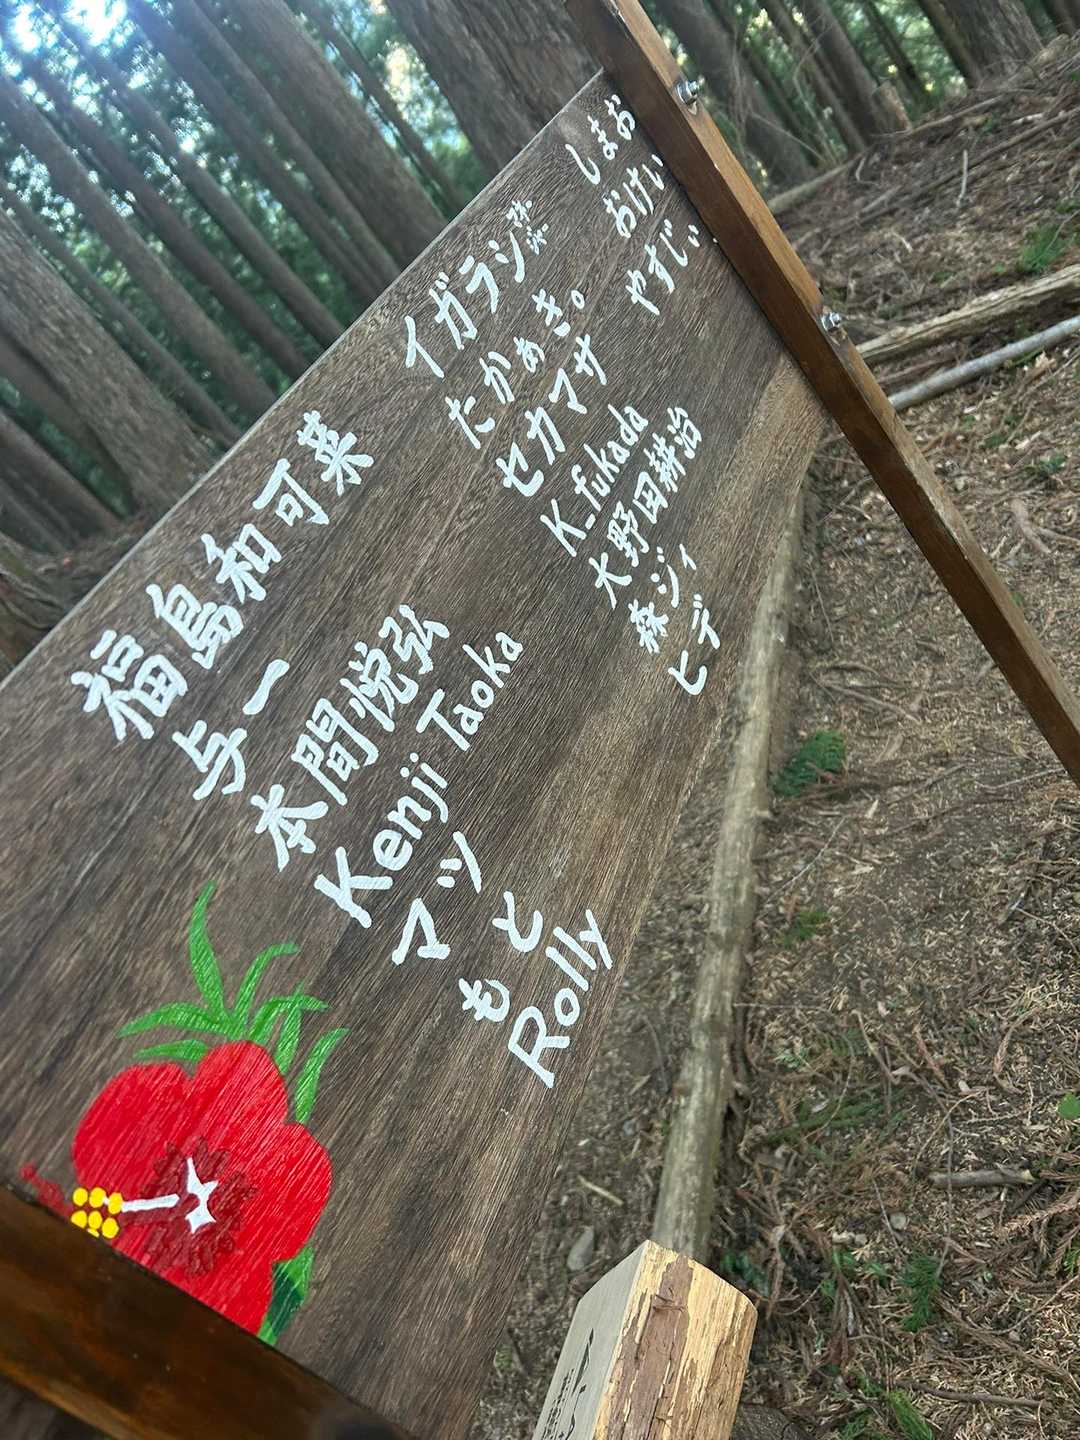 福島和可菜
与一
本間悦弘
Kenji Taoka
マツ
もと
Rolly
イガラシ
たかあき。
セカマサ
K_fukada
大野田耕治
森ジィ
ヒデ
しまお
おけい
やすじぃ